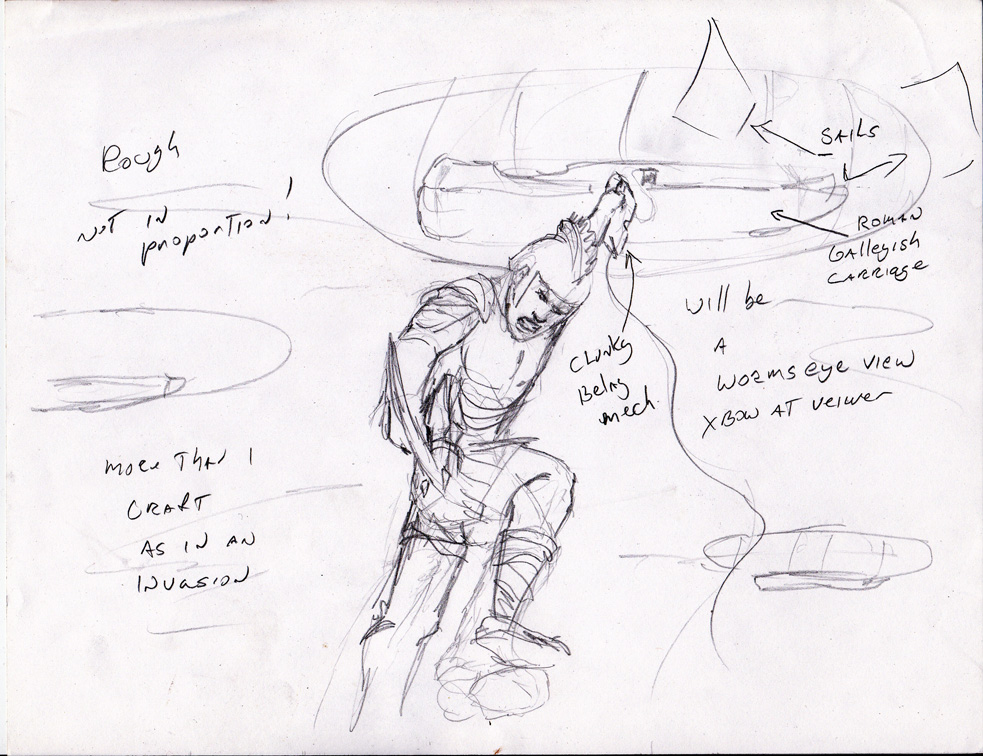 Rough
NOT IN
proportion!
SAILS
ROMAN
GAlleyish
CARRIAGE
Will be
A
WORMS eye view
XBOW AT veiwer
Clunky
Belay
mech.
more Than 1
CRAFT
AS IN AN
INVASION